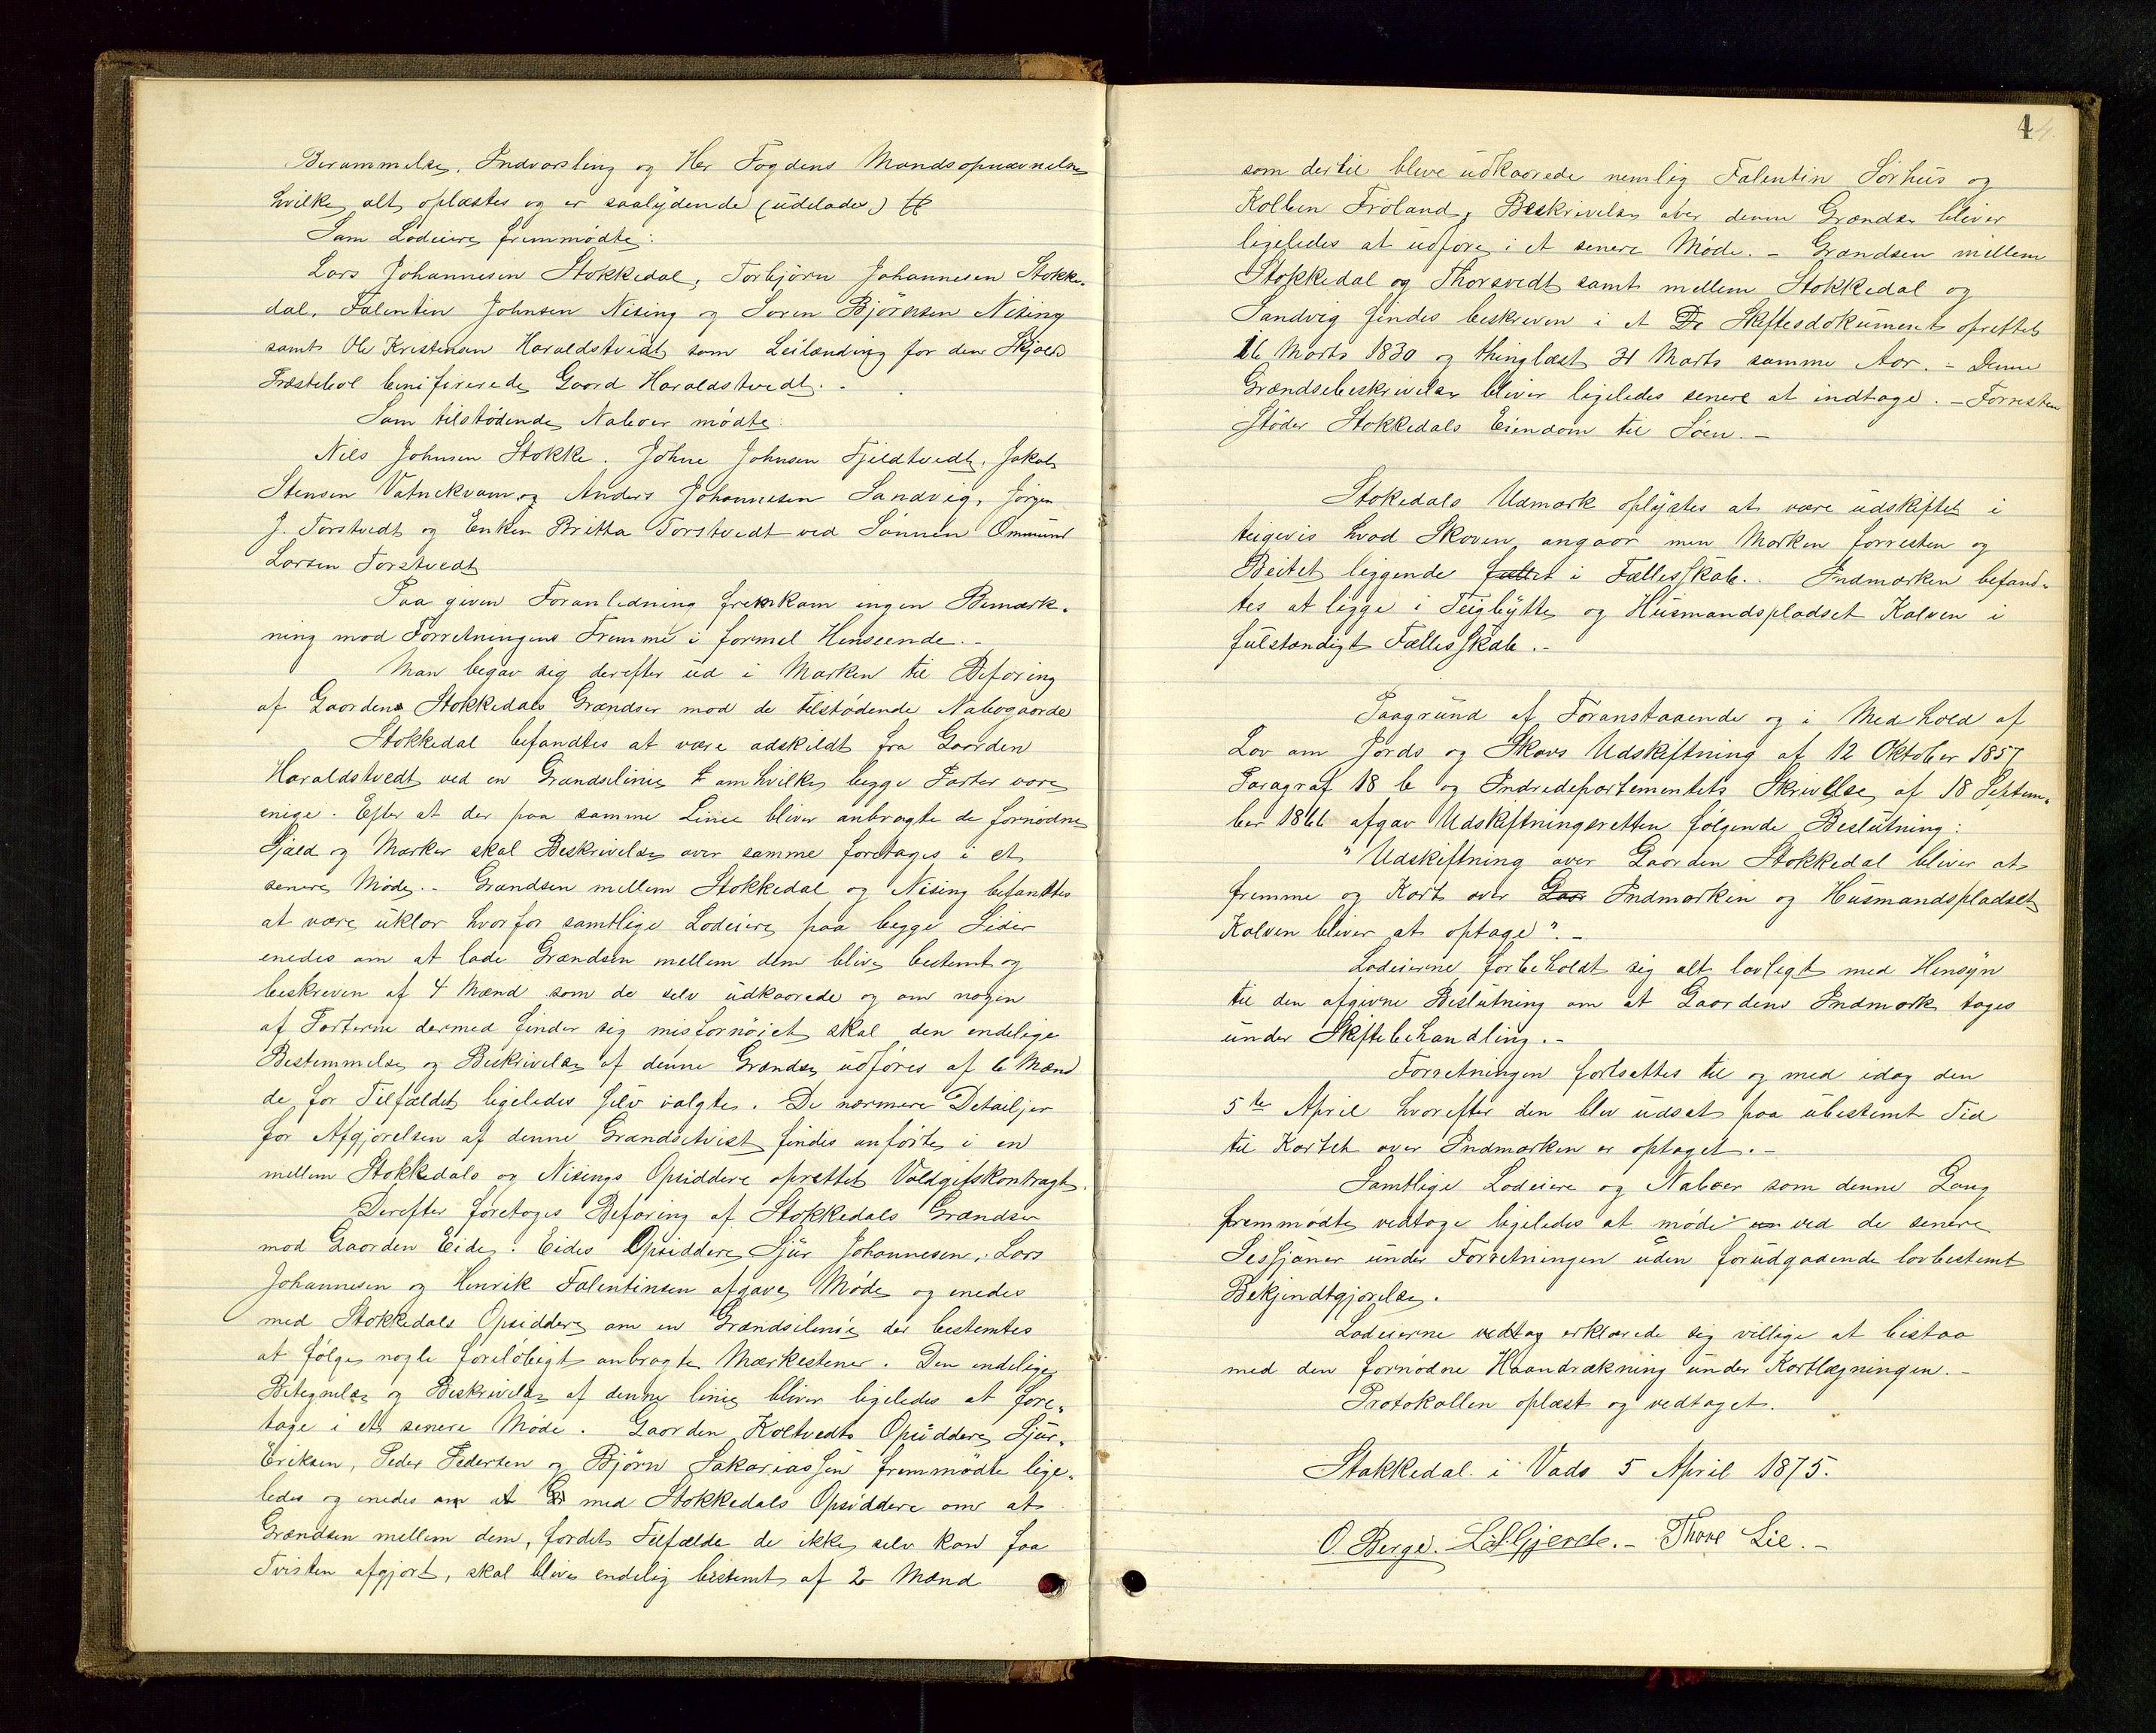 Berammelse, Indvarsling og Her Fogdens Mandsopnævnelse
hvilke alt oplæstes og er saalydende (udelades)
Som Lodeiere fremmødte:
Lars Johannesen Stokkedal, Torbjörn Johannesen Stokke-
dal, Falentin Johnsen Nising og Søren Bjørnsen Nising
samt Ole Kristensen Haraldstvedt som Leilænding for den Skjold
Præstebol benifiserede Gaard Haraldstvedt.
Som tilstødende Naboer mødte:
Nils Johnsen Stokke. Johne Johnsen Fjeldtvedt. Jakob
Stensen Vatnekvam og Anders Johannesen Sandvig, Jørgen
J. Torstvedt og Enken Britta Torstvedt ved Sønnen Ommund
Larsen Torstvedt
Paa given Foranledning fremkom ingen Bemærk-
ning mod Forretningens Fremme i formel Henseende. -
Man begav sig derefter ud i Marken til Befaring
af Gaarden Stokkedals Grændser mod de tilstødende Nabogaarde
Stokkedal befandtes at være adskildt fra Gaarden
Haraldstvedt ved en Grændselinie om hvilke begge Parter vare
enige. Efter at der paa samme Linie bliver anbragte de fornødne
Gjæld og Marker skal Beskrivelse over samme foretages i et
senere Møde. - Grændsen mellem Stokkedal og Nising befandtes
at være uklar hvorfor samtlige Lodeiere paa begge Sider
enedes om at lade Grændsen mellem dem blive bestemt og
beskreven af 4 Mænd som de selv udkaarede og om nogen
af Parterne dermed finder sig misfornøiet skal den endelige
Bestemmelse og Beskrivelse af denne Grændse udføres af 6 Mænd
de for Tilfældet ligeledes selv valgte. De nærmere Detailjer
for Afgjørelsen af denne Grændsetvist findes anførte i en
mellem Stokkedals og Nisings Opsiddere oprettet Voldgifskontragt.
Derefter foretoges Befaring af Stokkedals Grændser
mod Gaarden Eide. Eides Opsiddere Sjur Johannesen, Lars
Johannesen og Henrik Falentinsen afgave Møde og enedes
med Stokkedals Opsiddere om en Grændselinie der bestemtes
at følge nogle foreløbigt anbragte Mærkestener. Den endelige
Betegnelse og Beskrivelse af denne linie bliver ligeledes at fore-
tage i et senere Møde. Gaarden Koltvedts Opsiddere Sjur
Eriksen, Peder Pedersen og Bjørn Sakariassen fremmødte lige-
ledes og enedes om at med Stokkedals Opsiddere om at
Grændsen mellem dem, fordet Tilfælde de ikke selv kan faa
Tvisten afgjort, skal blive endelig bestemt af 2 Mænd
4 4.
som dertil bleve udkaarede nemlig Falentin Sørhus og
Kolben Frøland, Beskrivelse over denne Grændse bliver
ligeledes at udføre i et senere Møde. - Grændsen mellem
Stokkedal og Thorsvedt samt mellem Stokkedal og
Sandvig findes beskreven i et De Skiftesdokument oprettet
16 Marts 1830 og thinglæst 31 Marts samme Aar. - Denne
Grændsebeskrivelse bliver ligeledes senere at indtage. - Forresten
støder Stokkedals Eiendom til Søen. -
Stokedals Udmark oplystes at være udskiftet i
teigevis hvad Skoven angaar men Marken forresten og
Beitet liggende fællet i Fællesskab. Indmarken befand-
tes at ligge i Teigbytte og Husmandspladset Kalven i
fulstændigt Fællesskab. -
Paagrund af Foranstaaende og i Medhold af
Lov om Jords og Skovs Udskiftning af 12 Oktober 1857
Paragraf 18 b og Indredepartementets Skrivelse af 18 Septem-
ber 1866 afgav Udskiftningsretten følgende Beslutning:
"Udskiftning over Gaarden Stokkedal bliver at
fremme og Kort over Gaar Indmarken og Husmandspladset
Kalven bliver at optage". -
Lodeierne forbeholdt sig alt lovligt med Hensyn
til den afgivne Beslutning om at Gaardens Indmark tages
under Skiftebehandling. -
Forretningen fortsattes til og med idag den
5te April hvorefter den blev udsat paa ubestemt Tid
til Kortet over Indmarken er optaget. -
Samtlige Lodeiere og Naboer som denne Gang
fremmødte vedtoge ligeledes at møde ved de senere
Sessjoner under Forretningen uden forudgaaende lovbestemt
Bekjendtgjørelse.
Lodeierne vedtog erklærede sig villige at bistaa
med den fornødne Haandrækning under Kortlægningen. -
Protokollen oplæst og vedtaget.
Stakkedal i Vads 5 April 1875.
O. Berge. L. Gjerde. - Thore Lie. -